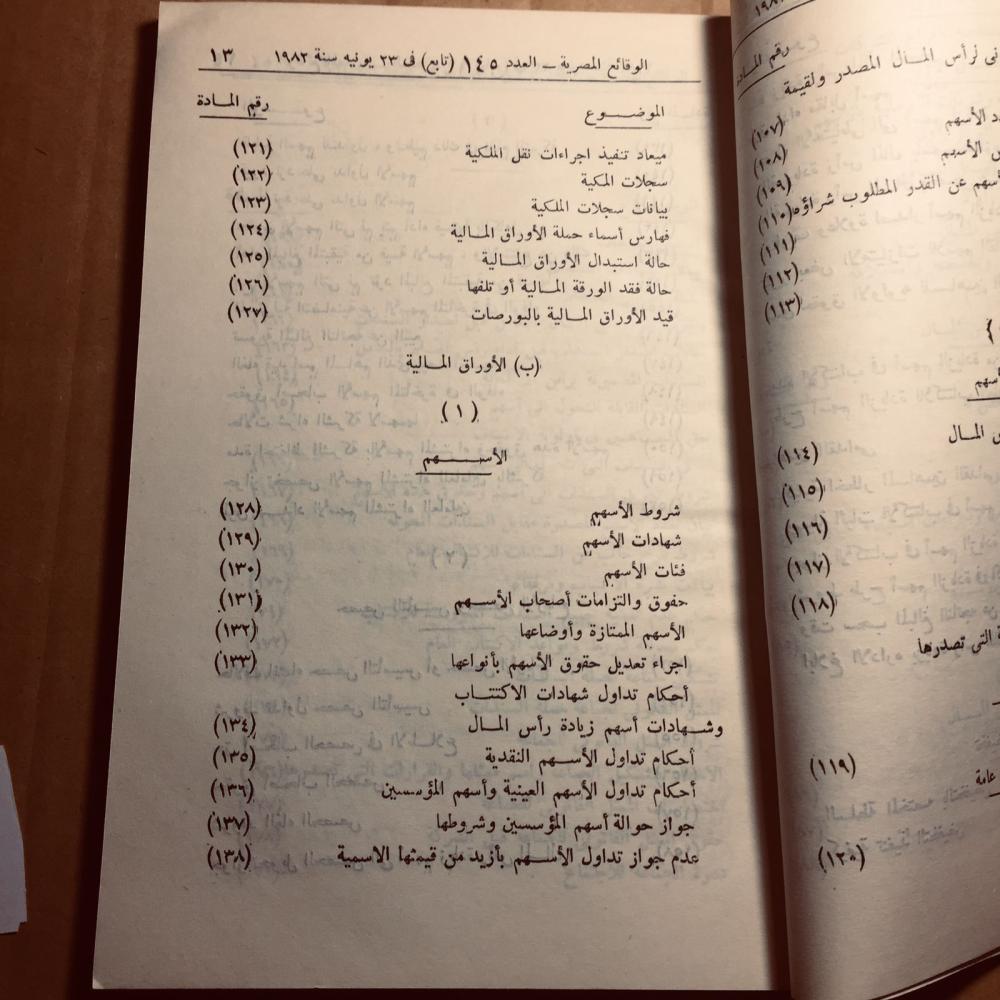 الوقائع المصرية ــ العدد ١٤٥ (تابع) فى ٢٣ يونيه سنة ١٩٨٢ ١٣
الموضـــوع رقم المـادة
ميعاد تنفيذ اجراءات نقل الملكية (١٢١)
سجلات المكية (١٢٢)
بيانات سجلات الملكية (١٢٣)
فهارس أسماء حملة الأوراق المـالية (١٢٤)
حالة استبدال الأوراق المـالية (١٢٥)
حالة فقد الورقة المـالية أو تلفها (١٢٦)
قيد الأوراق المـالية بالبورصات (١٢٧)
(ب) الأوراق المـالية
(١)
الأســـــهم
شروط الأسهم (١٢٨)
شهادات الأسهم (١٢٩)
فئات الأسهم (١٣٠)
حقوق والتزامات أصحاب الأســهم (١٣١)
الأسهم الممتازة وأوضاعها (١٣٢)
اجراء تعديل حقوق الأسهم بأنواعها (١٣٣)
أحكام تداول شهادات الاكتتـاب
وشـهادات أسهم زيادة رأس المـال (١٣٤)
أحكام تداول الأسـهم النقدية (١٣٥)
أحكام تداول الأسهم العينية وأسهم المؤسـسين (١٣٦)
جواز حوالة أسهم المؤسسين وشروطها (١٣٧)
عدم جواز تداول الأسـهم بأزيد من قيمتها الاسمية (١٣٨)
رقم المـادة
رأس المـال المصدر ولقيمة
الأسهم (١٠٧)
الأسهم (١٠٨)
عن القدر المطلوب شراؤه (١٠٩)
(١١٠)
(١١١)
(١١٢)
(١١٣)
المـال (١١٤)
(١١٥)
(١١٦)
(١١٧)
(١١٨)
التى تصدرها
(١١٩)
عامة
(١٢٠)